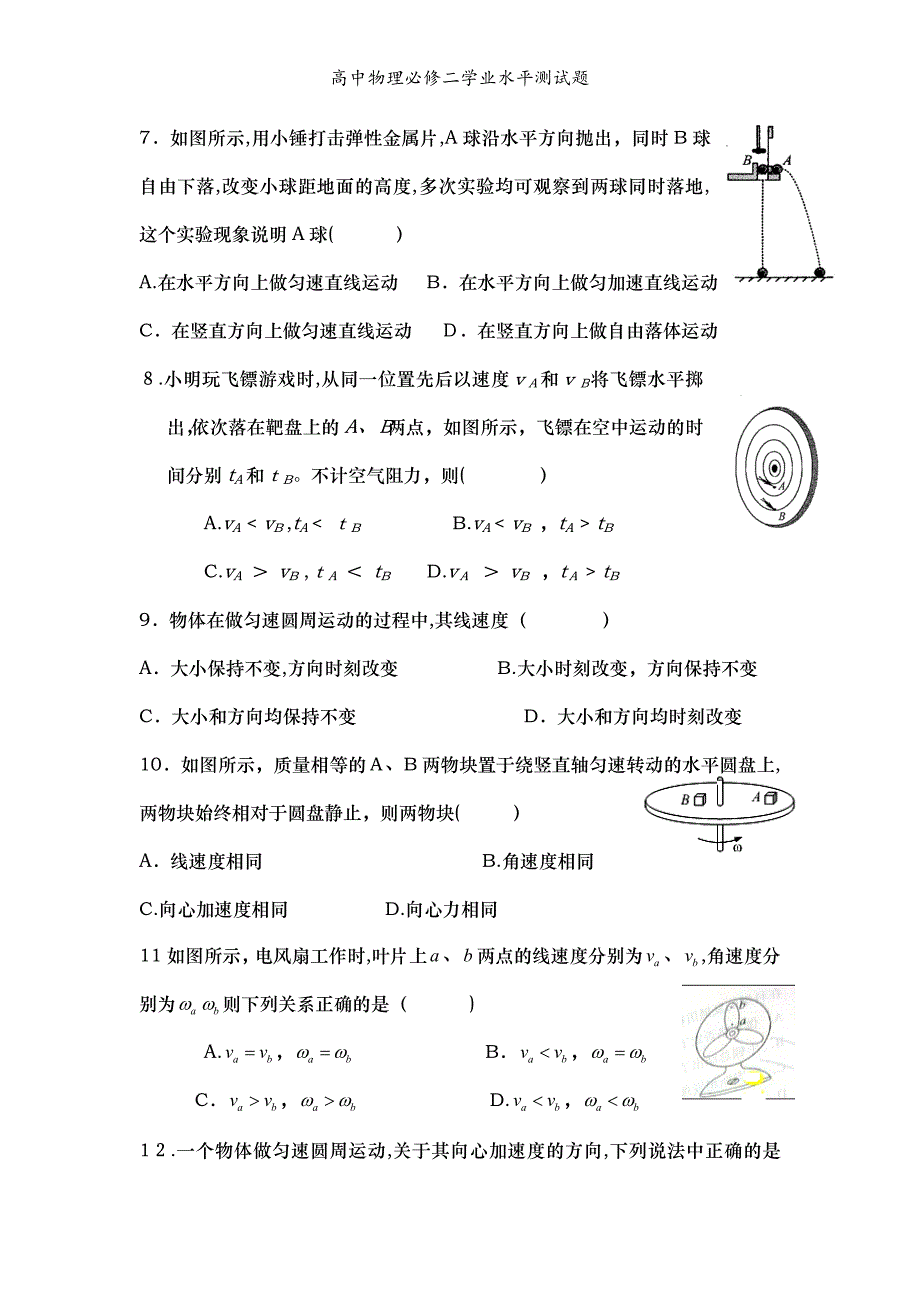 高中物理必修二学业水平测试题
7．如图所示,用小锤打击弹性金属片,A 球沿水平方向抛出，同时 B 球
自由下落,改变小球距地面的高度,多次实验均可观察到两球同时落地,
这个实验现象说明 A 球(　　)
A.在水平方向上做匀速直线运动　B．在水平方向上做匀加速直线运动
C．在竖直方向上做匀速直线运动　D．在竖直方向上做自由落体运动
B A
８.小明玩飞镖游戏时,从同一位置先后以速度 vA 和 vB 将飞镖水平掷
出,依次落在靶盘上的 A、B两点，如图所示，飞镖在空中运动的时
间分别 tA 和 tB。不计空气阻力，则(　　)
A
B
A.vA < vB ,tA < tB　B.vA < vB ，tA > tB
C.vA ＞ vB , tA ＜ tB　D.vA ＞ vB ，tA > tB
9．物体在做匀速圆周运动的过程中,其线速度（　　)
A．大小保持不变,方向时刻改变　B.大小时刻改变，方向保持不变
C．大小和方向均保持不变　D．大小和方向均时刻改变
10．如图所示，质量相等的 A、B 两物块置于绕竖直轴匀速转动的水平圆盘上,
两物块始终相对于圆盘静止，则两物块(　　)
B A
ω
A．线速度相同　B.角速度相同
C.向心加速度相同　D.向心力相同
11 如图所示，电风扇工作时,叶片上 a 、 b 两点的线速度分别为 va 、 vb ,角速度分
别为 ωa ωb 则下列关系正确的是（　　)
b
a
A. va = vb ，ωa = ωb　B．va < vb ，ωa = ωb
C．va > vb ，ωa > ωb　D. va < vb ，ωa < ωb
１２.一个物体做匀速圆周运动,关于其向心加速度的方向,下列说法中正确的是